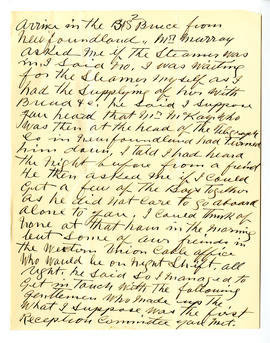 arrive in the Bruce from
Newfoundland, Mr Murray
asked me if the Steamer was
in. I said No, I was waiting
for the Steamer myself as I
had the supplying of her with
Bread &c, he said I suppose
you heard that Mr McKay who
was then at the head of the Telegraph
Co in Newfoundland had turned
him down, I told I had heard
the night before from a friend
He then asked me if I could
get a few of the Boys together
as he did not care to go aboard
alone to you, I could think of
none at that hour in the morning
but some of our friends in
the Western Union Cable office
who would be on night shift, all
right, he said so I managed to
get in touch with the following
Gentlemen who made up the
what I suppose, was the first
Reception Committee you met.